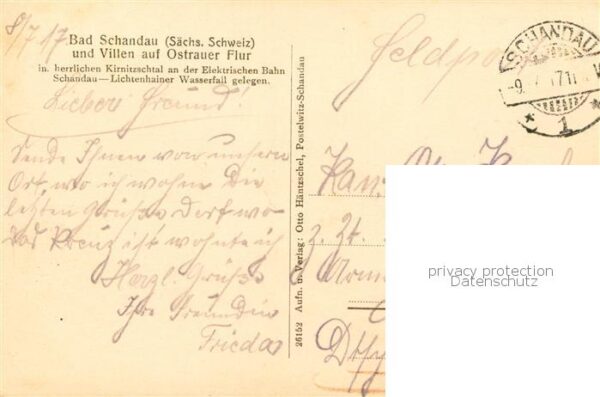 8/7 17.
Bad Schandau (Sächs. Schweiz)
und Villen auf Ostrauer Flur
in herrlichen Kirnitzschtal an der Elektrischen Bahn
Schandau—Lichtenhainer Wasserfall gelegen.
Lieber Freund!
Sende Ihnen von unsern
Ort wo ich wohne die
letzten Grüße dort wo
das Kreuz ist wohnte ich
Herzl. Grüße
Ihre Freundin
Frieda
26152 Aufn. u. Verlag: Otto Häntzschel, Postelwitz-Schandau
Feldpost
SCHANDAU
1
Kan.
z. Zt.
privacy protection
Datenschutz